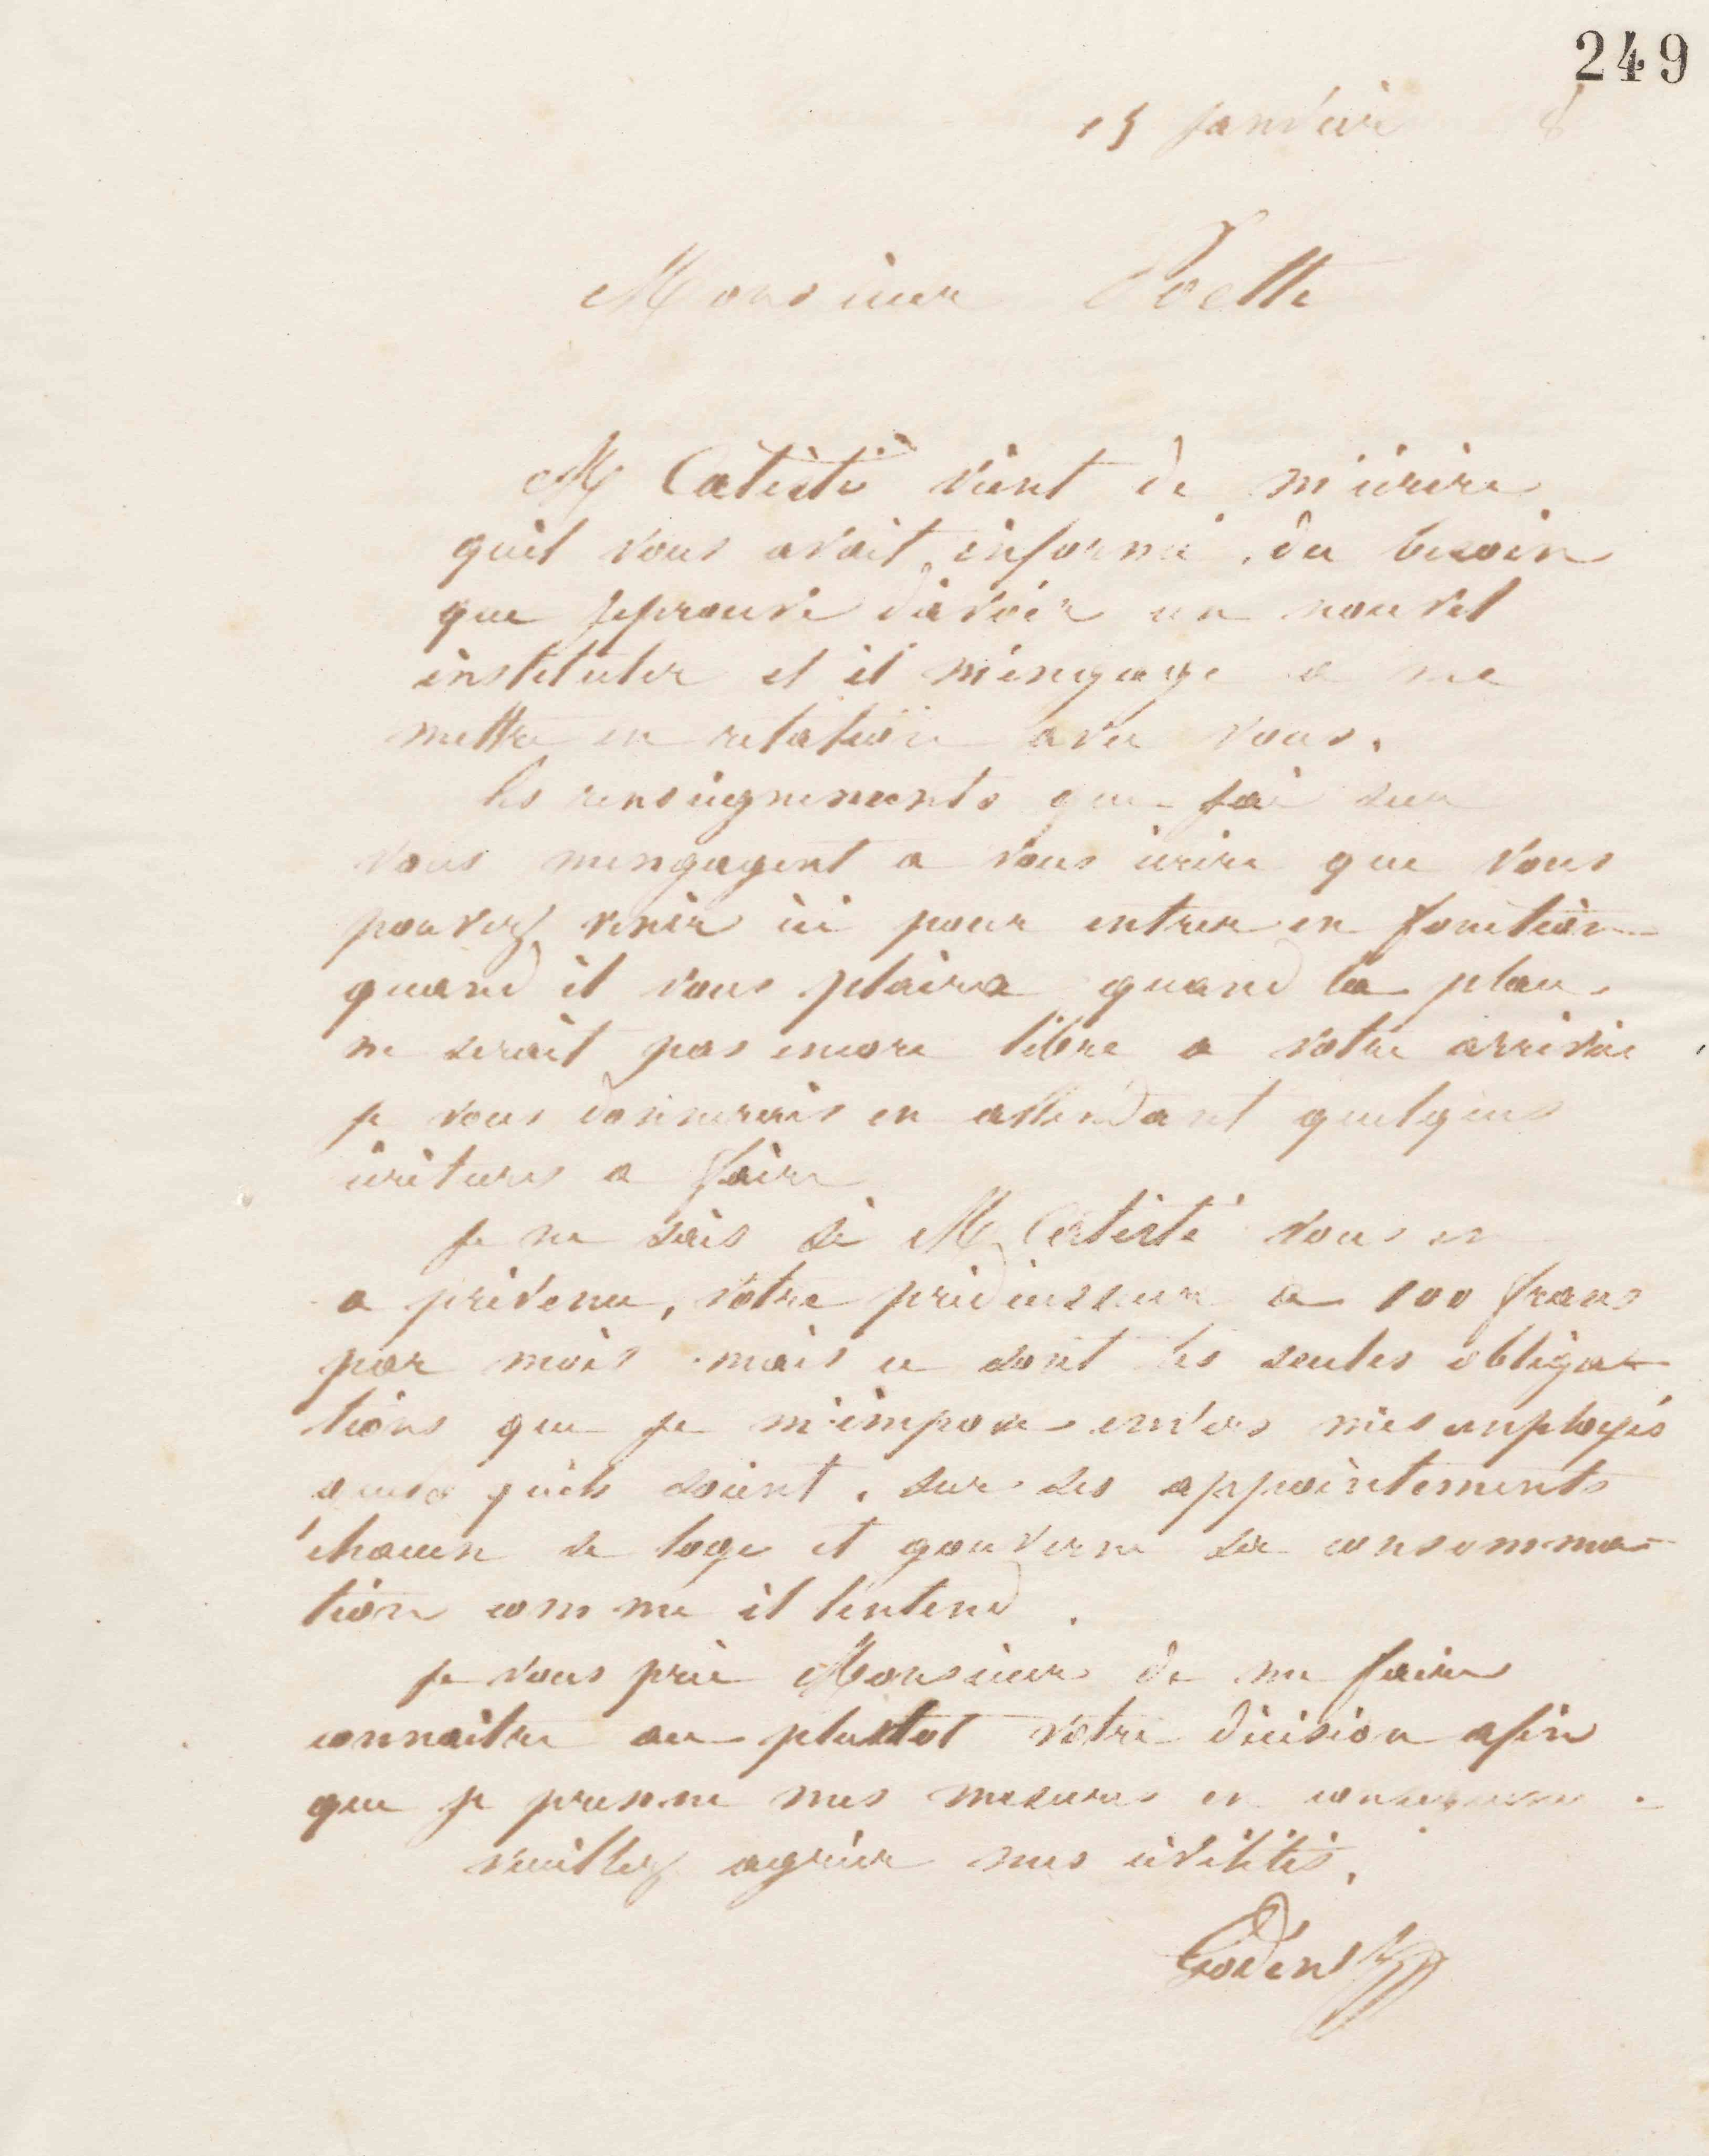 249
15 janvier 8
Monsieur Poette
M Catiste vient de m'écrire
quil vous avait informé du besoin
que jeprouve d'avoir un nouvel
instituter et il m'engage a me
mettre en relation avec vous.
les renseignements que jai sur
vous mengagent a vous écrire que vous
pouvez venir ici pour entrer en fonction
quand il vous plaira quand la place
ne serait pas encore libre a votre arrivée
je vous donnerais en attendant quelques
écritures a faire
je ne sais si M Catisté vous en
a prévenu, votre prédécesseur a 100 francs
par mois mais ce sont les seules obliga-
tions que je m'impose envers mes employés
quils soient. sur ses appointements
chacun se loge et gouverne sa consomma-
tion comme il lentend.
je vous prie Monsieur de me faire
connaitre au plustot votre décision afin
que je prenne mes mesures en consequence.
veuillez agréer mes civilités.
Godin